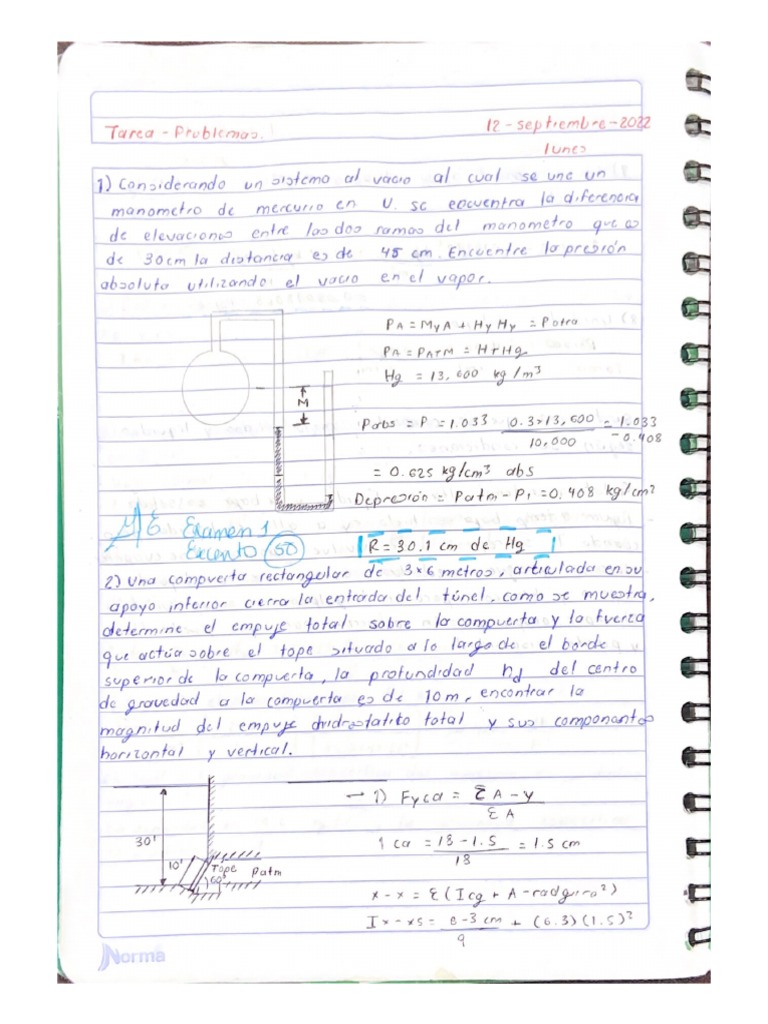 Tarea - Problemas.
12 - septiembre - 2022
lunes
1) Considerando un sistema al vacio al cual se une un
manometro de mercurio en U. se encuentra la diferencia
de elevaciones entre las dos ramas del manometro que es
de 30cm la distancia es de 45 cm. Encuentre la presión
absoluta utilizando el vacio en el vapor.
PA = MγA + Hγ Hγ = Patra
PA = PATM = HrHg
Hg = 13,600 kg/m³
M
Pabs = P = 1.033 0.3×13,600 = 1.033
10,000 -0.408
= 0.625 kg/cm³ abs
Depresión = Patm - P1 = 0.408 kg/cm²
Examen 1
Excento 50
R = 30.1 cm de Hg
2) Una compuerta rectangular de 3×6 metros, articulada en su
apoyo inferior cierra la entrada del túnel, como se muestra,
determine el empuje total sobre la compuerta y la fuerza
que actúa sobre el tope situado a lo largo de el borde
superior de la compuerta, la profundidad hd del centro
de gravedad a la compuerta es de 10m, encontrar la
magnitud del empuje total y sus componantes
horizontal y vertical.
→ 1) Fyca = Σ A - y
Σ A
30'
1 ca = 18 - 1.5 = 1.5 cm
18
10'
Tope
Patm
60°
x - x = Σ (Icg + A - radgiro²)
Ix - xs = 6-3 cm + (6.3) (1.5)²
9
Norma